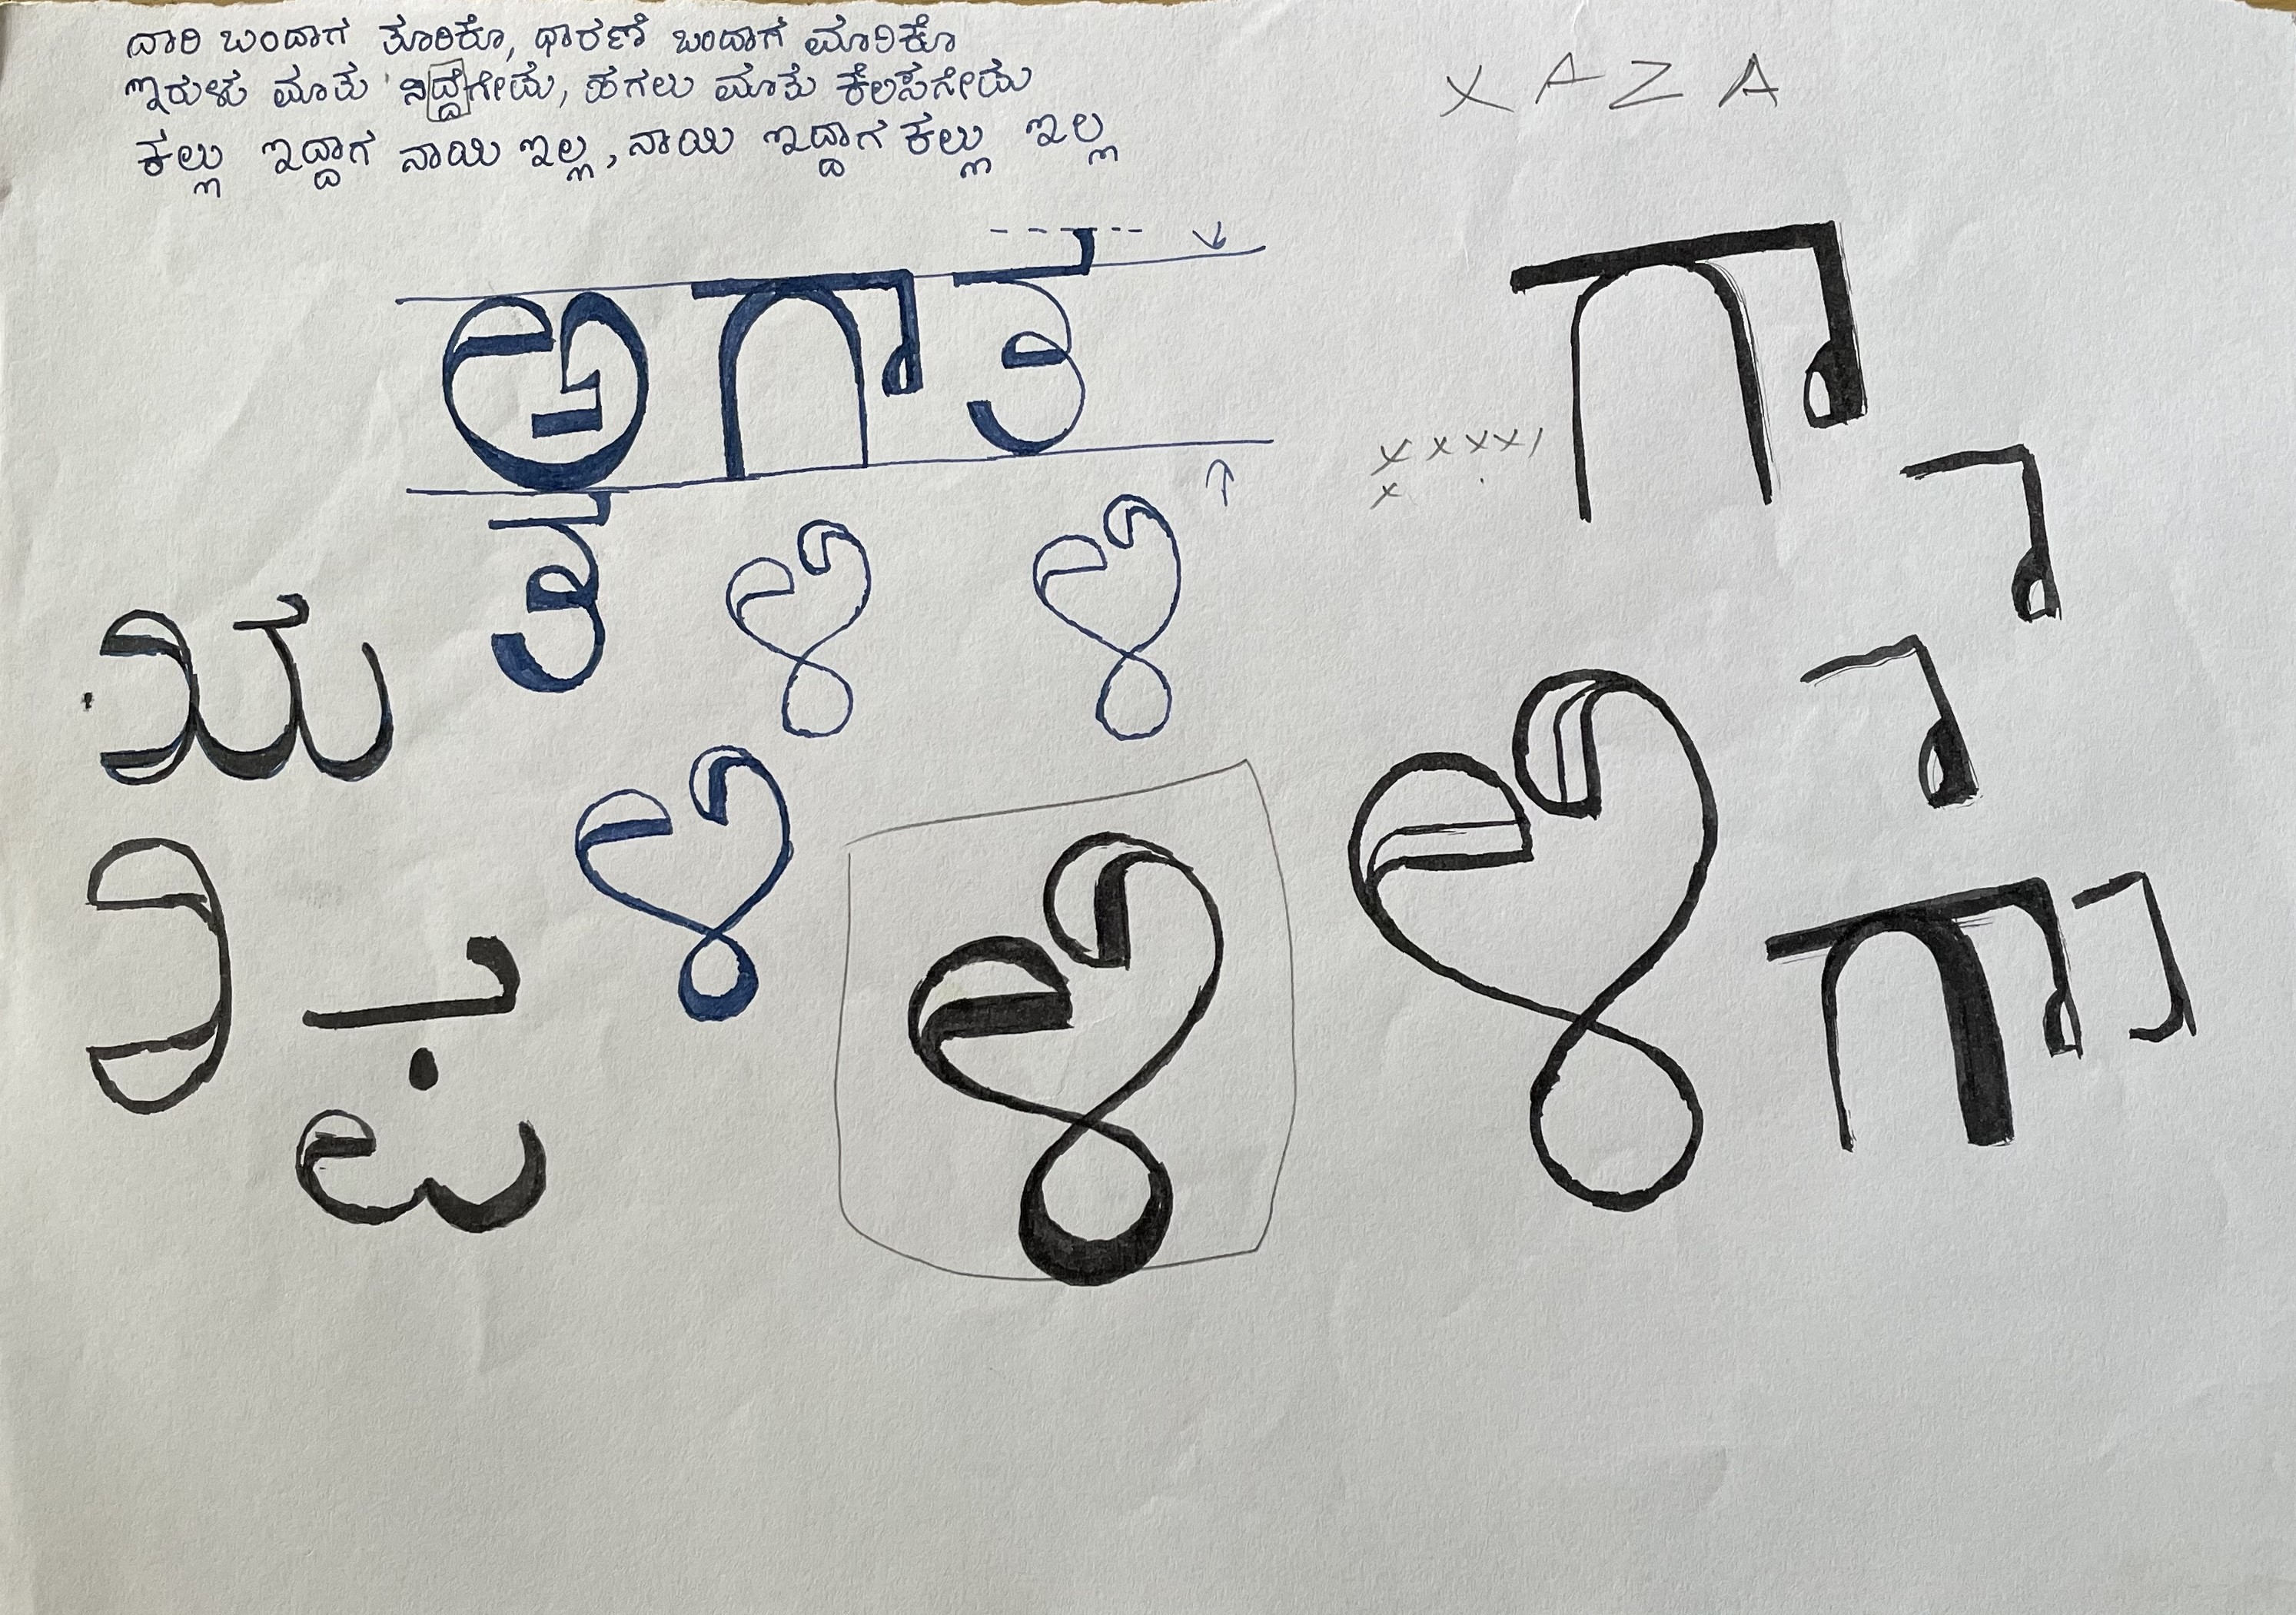 ದಾರಿ ಬಂದಾಗ ತೂರಿಕೊ, ಧಾರಣೆ ಬಂದಾಗ ಮಾರಿಕೊ
ಇರುಳು ಮಾತು ನಿದ್ದೆಗೇಡು, ಹಗಲು ಮಾತು ಕೆಲಸಗೇಡು
ಕಲ್ಲು ಇದ್ದಾಗ ನಾಯಿ ಇಲ್ಲ, ನಾಯಿ ಇದ್ದಾಗ ಕಲ್ಲು ಇಲ್ಲ
X A Z A
ಅ ಗಾ ತ
ಗಾ
x x x x
x
ತ ಳಿ ಳಿ
ಯ
ಳಿ
ಳಿ
ಳಿ
ಗಾ